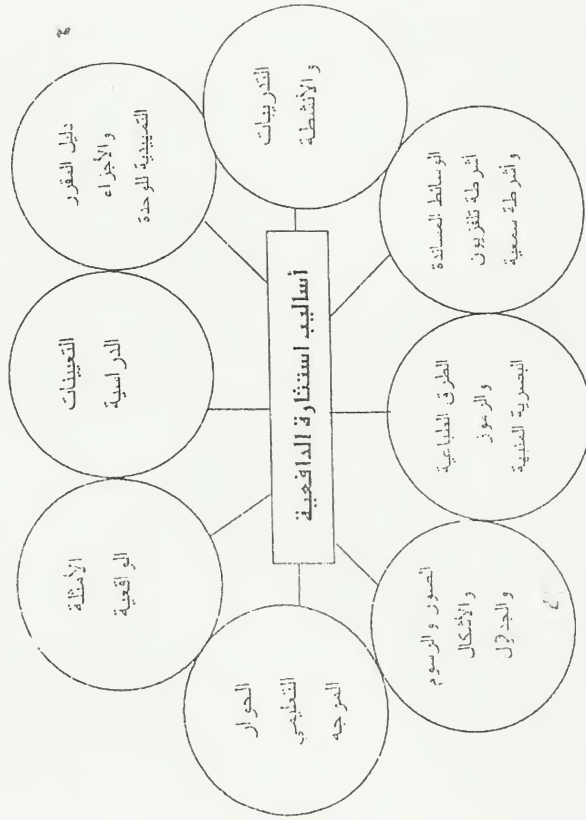 أساليب استثارة الدافعية
دليل المقرر
والأجزاء
التمهيدية للوحدة
التدريبات
والأنشطة
الوسائط المساندة
أشرطة تلفزيون
وأشرطة سمعية
الطرق الطباعية
والرموز
البصرية المنبهة
الصور والرسوم
والأشكال
والجداول
الحوار
التعليمي
الموجه
الأمثلة
الواقعية
التعيينات
الدراسية